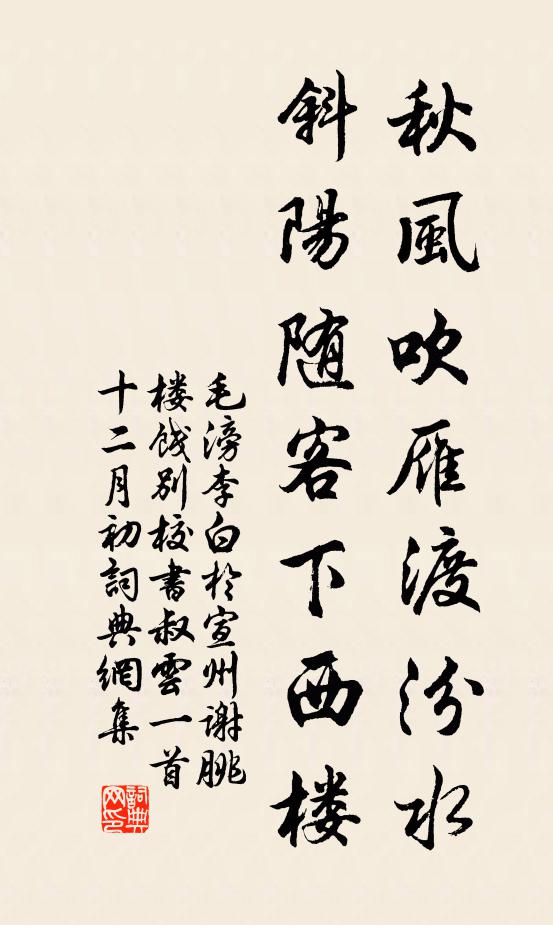 秋風吹雁渡汾水
斜陽随客下西楼
毛滂李白於宣州谢朓
楼餞别校書叔雲一首
十二月初詞典網集
詞典
网印